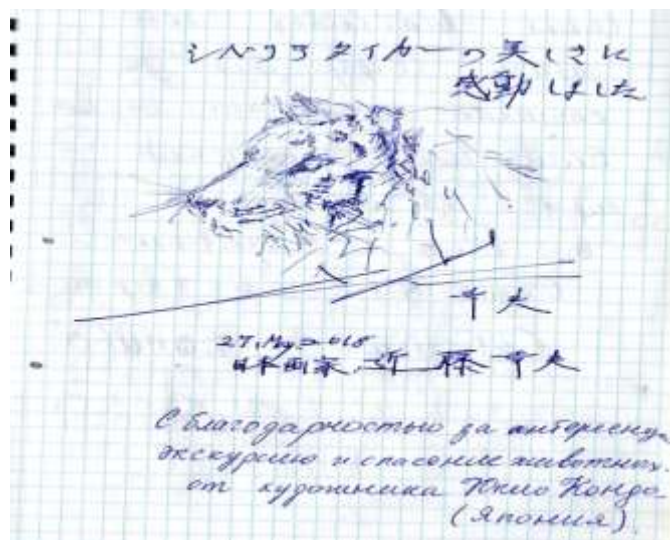 シベリアタイガーの美しさに
感動しました
幸夫
27. May 2018
日本画家 近藤幸夫
С благодарностью за интересную
экскурсию и спасение животных
от художника Юкио Кондо
(Япония)